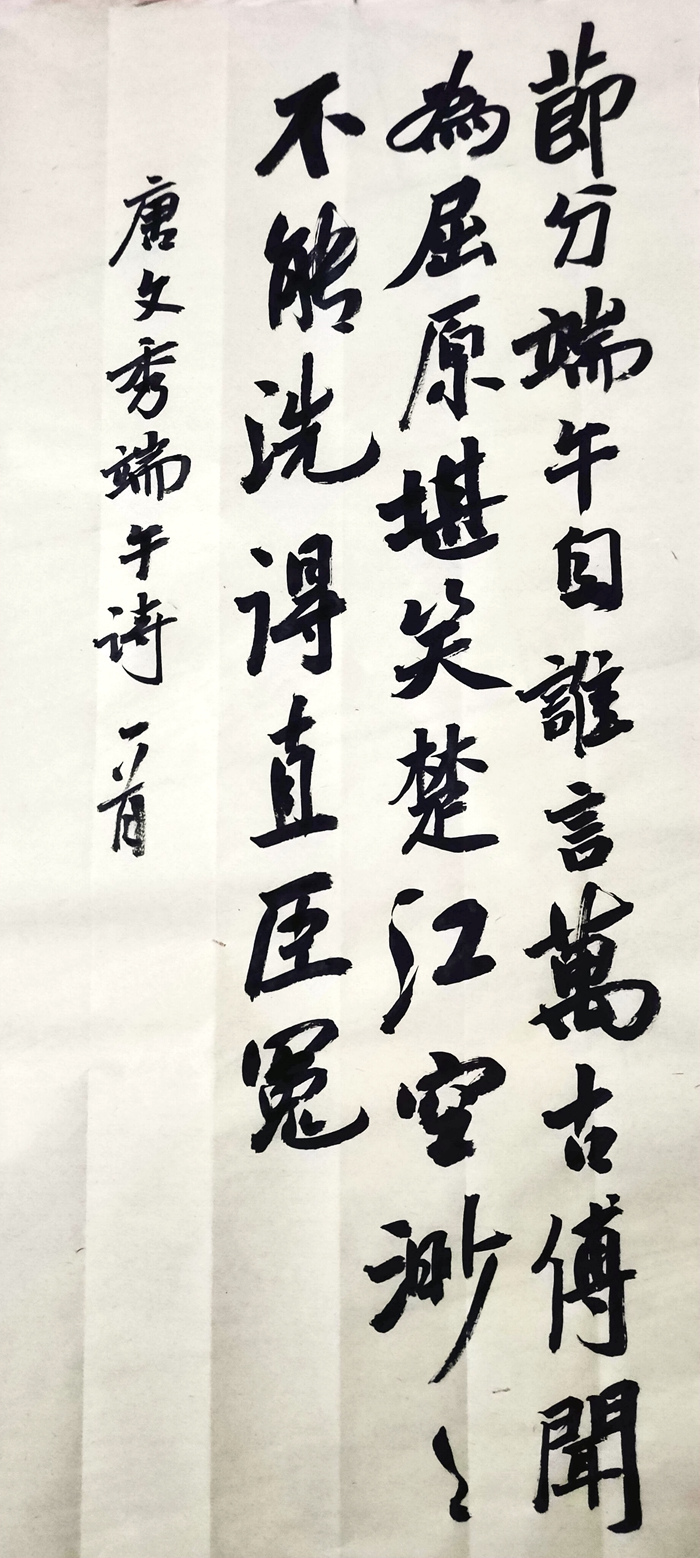 節分端午自誰言萬古傳聞
為屈原堪笑楚江空渺〻
不能洗得直臣冤
唐文秀端午詩一首